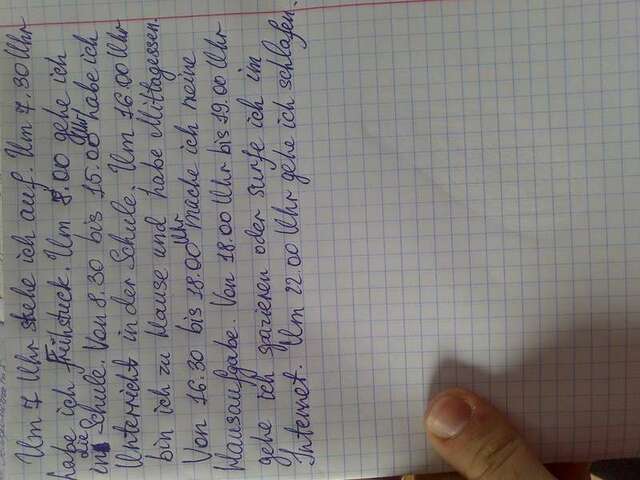 Um 7 Uhr stehe ich auf. Um 7.30 Uhr
habe ich Frühstuck. Um 8.00 gehe ich
in die Schule. Von 8.30 bis 15.00 Uhr habe ich
Unterricht in der Schule. Um 16.00 Uhr
bin ich zu Hause und habe Mittagessen.
Von 16.30 bis 18.00 Uhr mache ich meine
Hausaufgabe. Von 18.00 Uhr bis 19.00 Uhr
gehe ich spazieren oder surfe ich im
Internet. Um 22.00 Uhr gehe ich schlafen.